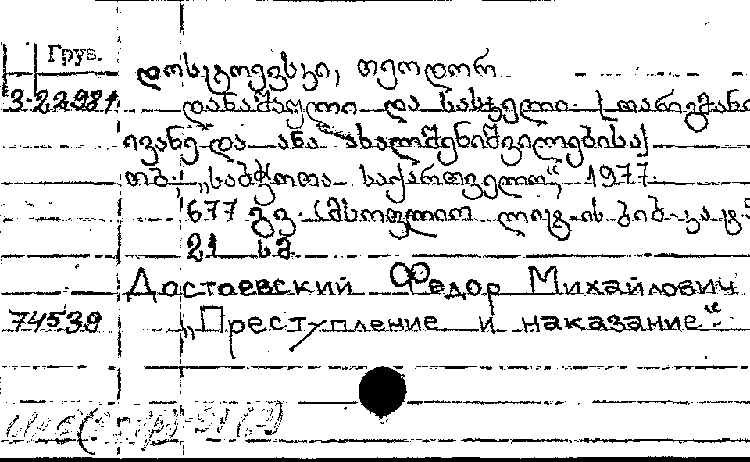 Груз.
დოსტოევსკი, თეოდორ
3-22981 დანაშაული და სასჯელი. [თარგმანი
ივანე და ანა ახალშენიშვილებისა]
თბ., „საბჭოთა საქართველო“, 1977.
677 გვ. (მსოფლიო ლიტ-ის ბიბ-კა
21 სმ
Достаевский Федор Михайлович
74539 „Преступление и наказание“.